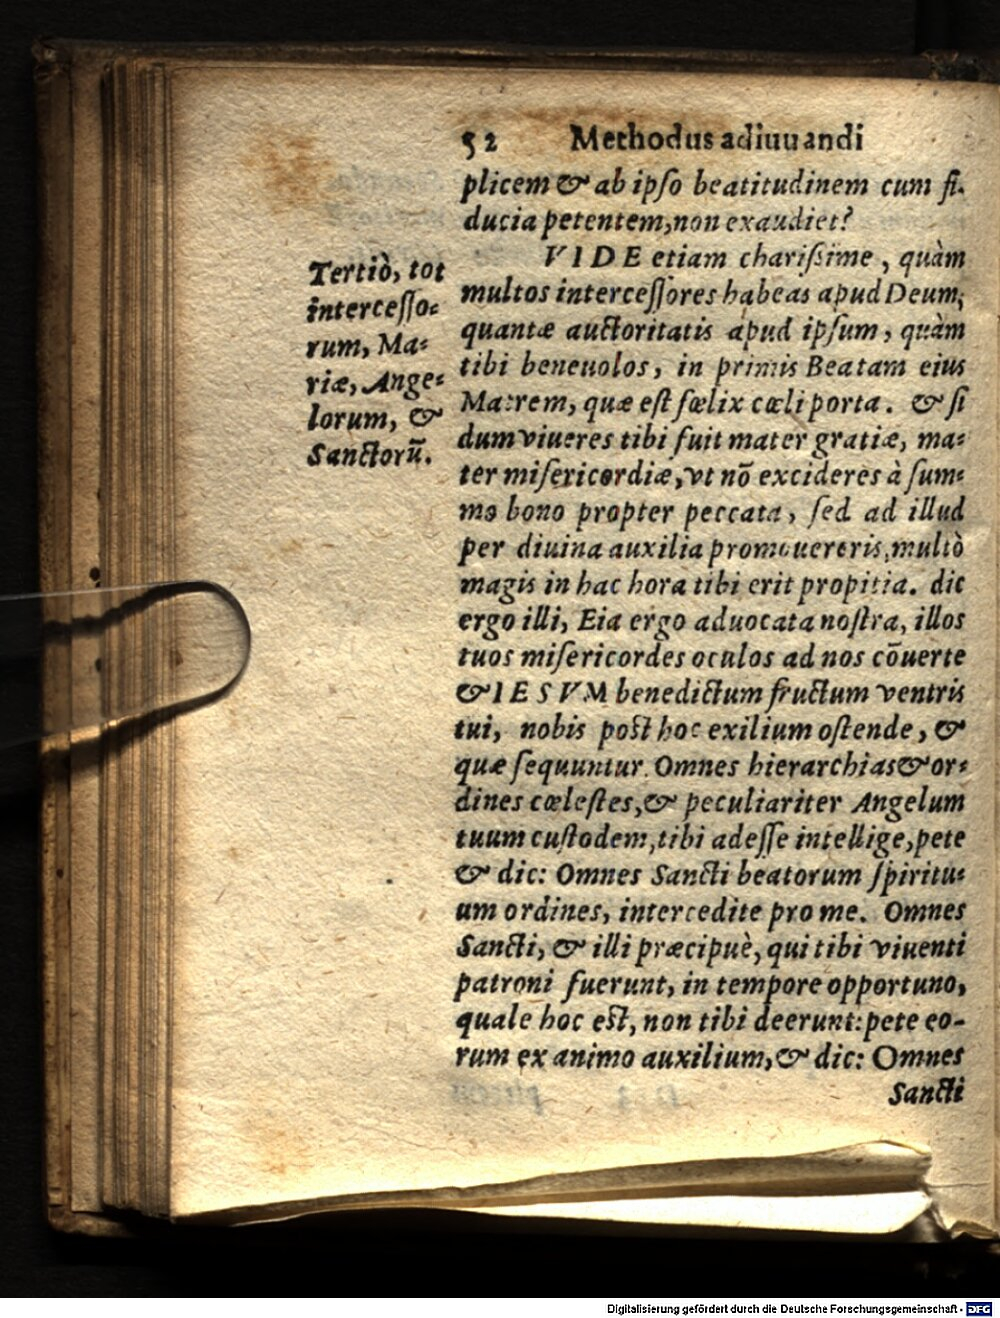 52 Methodus adiuuandi
plicem & ab ipſo beatitudinem cum fi-
ducia petentem, non exaudiet?
VIDE etiam chariſsime, quàm
multos interceſſores habeas apud Deum,
quantæ auctoritatis apud ipſum, quàm
tibi beneuolos, in primis Beatam eius
Matrem, quæ eſt fœlix cœli porta. & ſi
dum viueres tibi fuit mater gratiæ, ma-
ter miſericordiæ, vt nō excideres à ſum-
mo bono propter peccata, ſed ad illud
per diuina auxilia promouereris, multò
magis in hac hora tibi erit propitia. dic
ergo illi, Eia ergo aduocata noſtra, illos
tuos miſericordes oculos ad nos cōuerte
& IESVM benedictum fructum ventris
tui, nobis poſt hoc exilium oſtende, &
quæ ſequuntur. Omnes hierarchias & or-
dines cœleſtes, & peculiariter Angelum
tuum cuſtodem, tibi adeſſe intellige, pete
& dic: Omnes Sancti beatorum ſpiritu-
um ordines, intercedite pro me. Omnes
Sancti, & illi præcipuè, qui tibi viuenti
patroni fuerunt, in tempore opportuno,
quale hoc eſt, non tibi deerunt: pete eo-
rum ex animo auxilium, & dic: Omnes
Sancti
Tertiò, tot
interceſſo-
rum, Ma-
riæ, Ange-
lorum, &
Sanctorū.
Digitalisierung gefördert durch die Deutsche Forschungsgemeinschaft - DFG